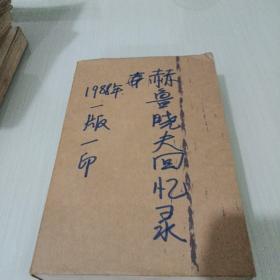 赫鲁晓夫回忆录
1988年
一版一印